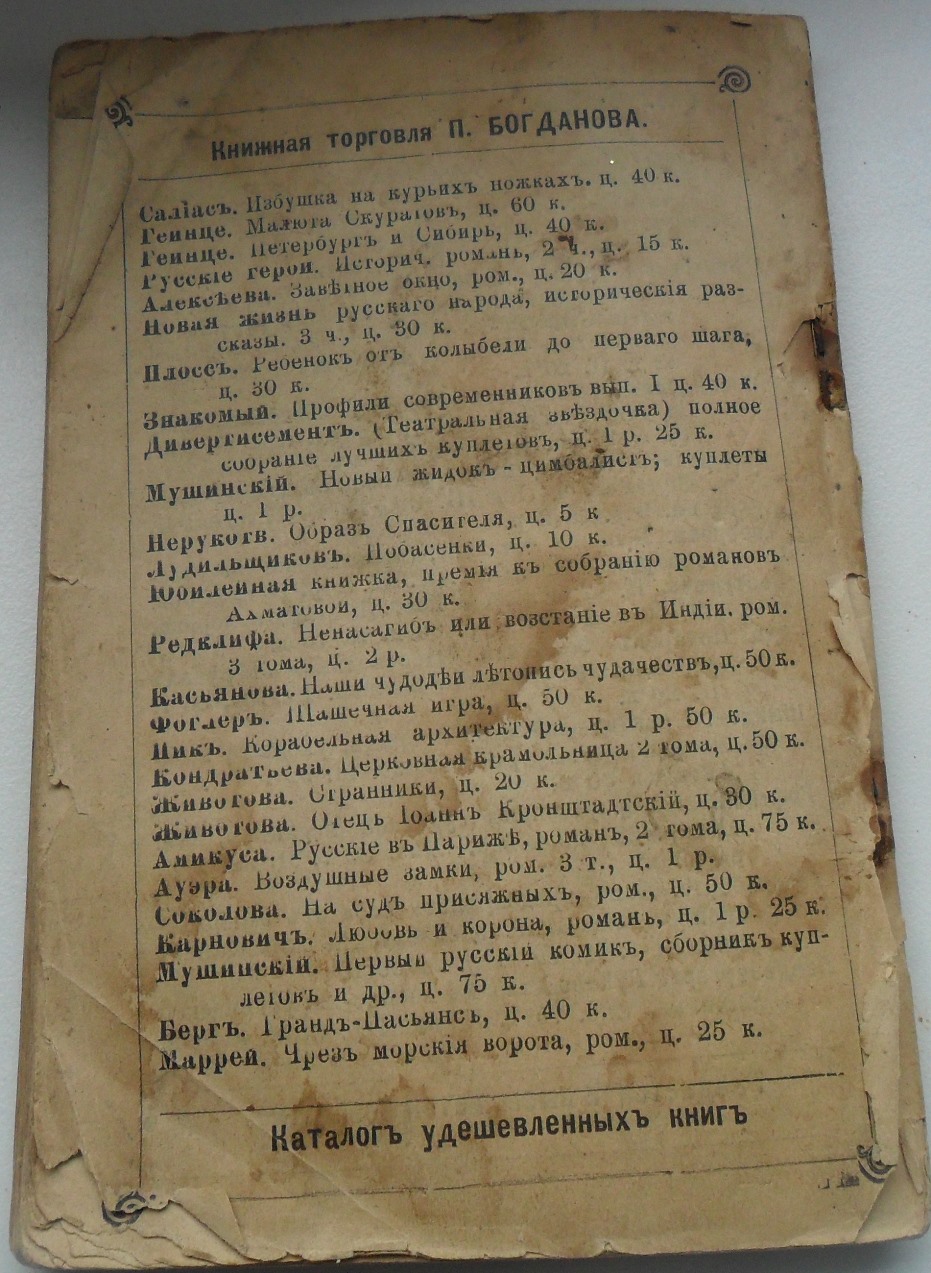 Книжная торговля П. БОГДАНОВА.
Саліасъ. Избушка на курьихъ ножкахъ. ц. 40 к.
Гейнце. Малюта Скуратовъ, ц. 60 к.
Гейнце. Петербургъ и Сибирь, ц. 40 к.
Русскіе герои. Историч. романъ, 2 ч., ц. 15 к.
Алексѣева. Завѣтное окно, ром., ц. 20 к.
Новая жизнь русскаго народа, историческія раз-
сказы. 3 ч., ц. 30 к.
Плоссъ. Ребенокъ отъ колыбели до перваго шага,
ц. 30 к.
Знакомый. Профили современниковъ вып. I ц. 40 к.
Дивертисементъ. (Театральная звѣздочка) полное
собраніе лучшихъ куплетовъ, ц. 1 р. 25 к.
Мушинскій. Новый жидокъ-цимбалистъ; куплеты
ц. 1 р.
Нерукотв. Образъ Спасителя, ц. 5 к
Лудильщиковъ. Побасенки, ц. 10 к.
Юбилейная книжка, премія къ собранію романовъ
Ахматовой, ц. 30 к.
Редклифа. Ненасагибъ или возстаніе въ Индіи. ром.
3 тома, ц. 2 р.
Касьянова. Наши чудодѣи лѣтопись чудачествъ, ц. 50 к.
Фоглеръ. Шашечная игра, ц. 50 к.
Пикъ. Корабельная архитектура, ц. 1 р. 50 к.
Кондратьева. Церковная крамольница 2 тома, ц. 50 к.
Животова. Странники, ц. 20 к.
Животова. Отецъ Іоаннъ Кронштадтскій, ц. 30 к.
Амикуса. Русскіе въ Парижѣ, романъ, 2 тома, ц. 75 к.
Ауэра. Воздушные замки, ром. 3 т., ц. 1 р.
Соколова. На судъ присяжныхъ, ром., ц. 50 к.
Карновичъ. Любовь и корона, романъ, ц. 1 р. 25 к.
Мушинскій. Первый русскій комикъ, сборникъ куп-
летовъ и др., ц. 75 к.
Бергъ. Грандъ-Пасьянсъ, ц. 40 к.
Маррей. Чрезъ морскія ворота, ром., ц. 25 к.
Каталогъ удешевленныхъ книгъ